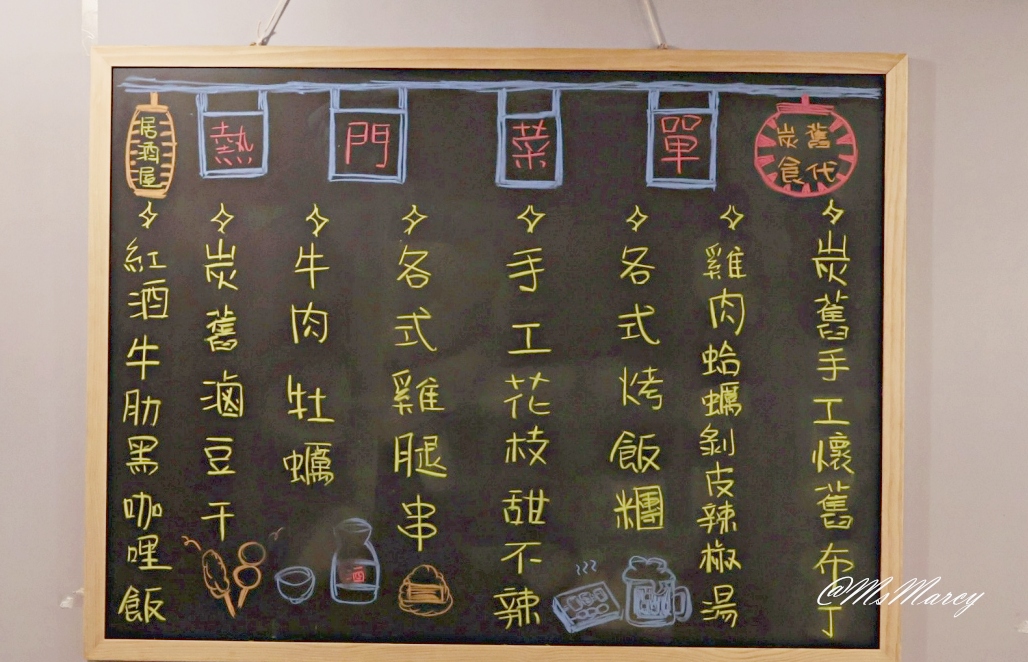 熱門菜單
居酒屋
炭舊
食代
紅酒牛肋黑咖哩飯
炭舊滷豆干
牛肉牡蠣
各式雞腿串
手工花枝甜不辣
各式烤飯糰
雞肉蛤蠣剝皮辣椒湯
炭舊手工懷舊布丁
酒
@MsMarcy